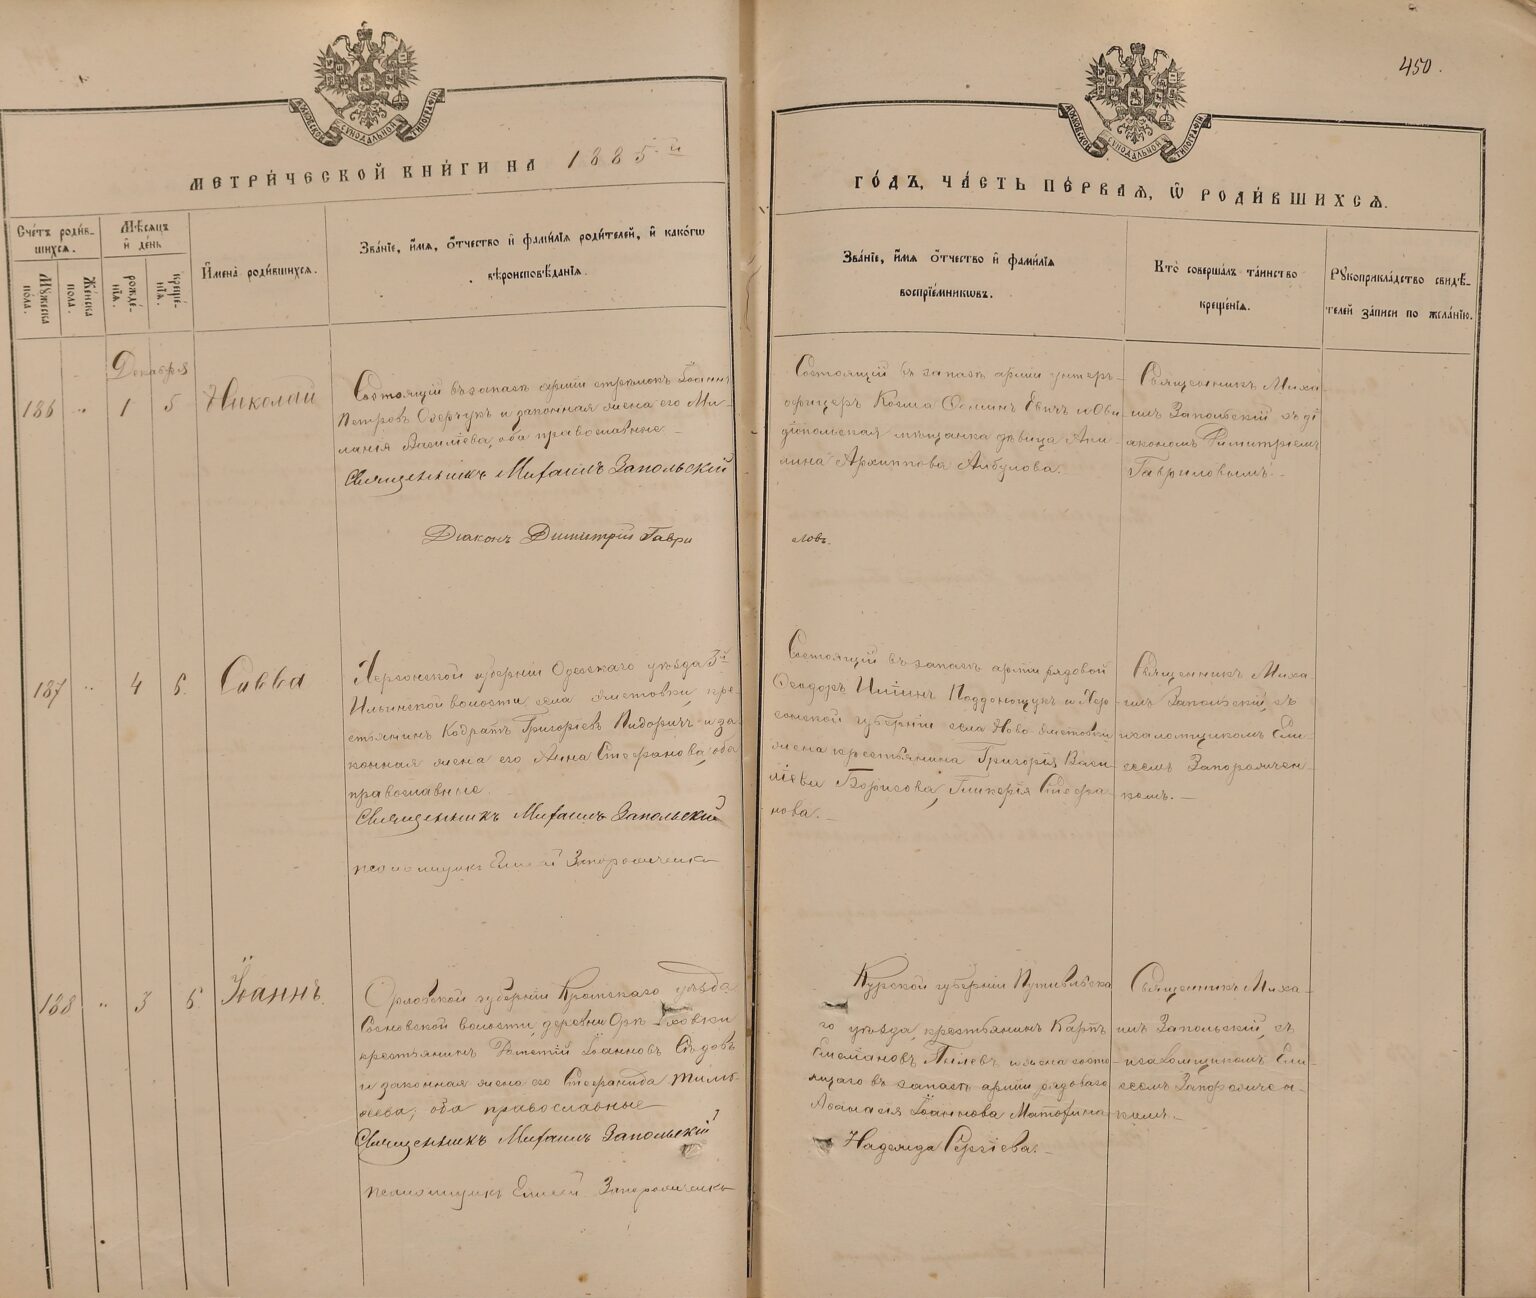 450.
МОСКОВСКОЙ СѴНОДАЛЬНОЙ ТИПОГРАФІИ
МОСКОВСКОЙ СѴНОДАЛЬНОЙ ТИПОГРАФІИ
МЕТРИ́ЧЕСКОЙ КНИ́ГИ НА 1885-й
ГО́ДЪ, ЧА́СТЬ ПЕ́РВАЯ, Ѡ РОДИ́ВШИХСЯ.
Сче́тъ роди́в-
шихся.
Мꙋжеска по́ла.
Же́нска по́ла.
Мѣ́сяцъ
и҆ де́нь
рожде́-
нїя.
креще́-
нїя.
И҆мена̀ роди́вшихся.
Зва́нїе, и҆́мя, ѻ҆́тчество и҆ фами́лїя роди́телей, и҆ како́гѡ
вѣроисповѣ́данїя.
Зва́нїе, и҆́мя ѻ҆́тчество и҆ фами́лїя
воспрїе́мникѡвъ.
Кто̀ соверша́лъ та́инство
креще́нїя.
Рꙋкоприкла́дство свидѣ́-
телей за́писи по жела́нїю.
Декабря
186 „ 1 5 Николай
Состоящій въ запасѣ арміи стрѣлокъ Іоаннъ
Петровъ Озерчукъ и законная жена его Ми-
ланія Василіева, оба православные.
Священникъ Михаилъ Запольскій
Діаконъ Димитрій Гаври
Состоящій въ запасѣ арміи унтеръ-
офицеръ Козма Ѳоминъ и Ови-
діопольская мѣщанка дѣвица
Архиппова Албулова.
ловъ.
Священникъ Миха-
илъ Запольскій съ ді
акономъ Димитріемъ
Гавриловымъ.
187 „ 4 5. Савва
Херсонской губерніи Одесскаго уѣзда 3й
Ильинской волости, села Ӕметовки, кре-
стьянинъ Кодратъ Григоріевъ Пидоричъ и за-
конная жена его Анна Стефанова, оба
православные.
Священникъ Михаилъ Запольскій
псаломщикъ Елисей Запорожченко
Состоящій въ запасѣ арміи рядовой
Ѳеодоръ Поддонощукъ и Хер-
сонской губерніи села Ново-
жена крестьянина Григорія Васи-
ліева Борисова, Гликерія Стефа-
нова.
Священникъ Миха-
илъ Запольскій, съ
псаломщикомъ Ели-
сеемъ Запорожчен-
комъ.
188 „ 3 5. Іоаннъ
Орловской губерніи Кромскаго уѣзда
Сосновской волости, деревни
крестьянинъ Іоанновъ Сѣдовъ
и законная жена его Стефанида Тимо-
ѳеева, оба православные
Священникъ Михаилъ Запольскій
псаломщикъ Елисей Запорожченко
Курской губерніи Путивльска
го уѣзда, крестьянинъ Карпъ
и жена состо-
ящаго въ запасѣ арміи рядоваго
Аѳанасія Іоаннова
Надежда Сергіева.
Священникъ Миха-
илъ Запольскій, съ
псаломщикомъ Ели-
сеемъ Запорожчен-
комъ.